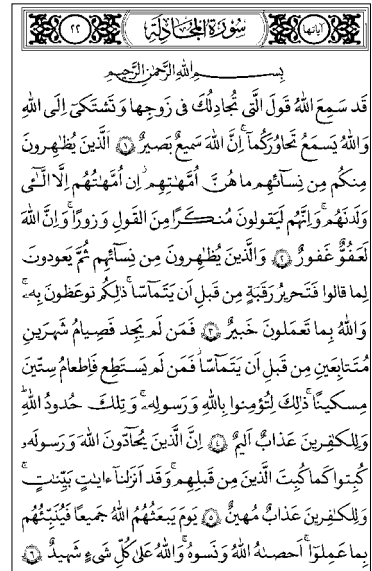 آياتها سورة المجادلة ٢٢
بسم الله الرحمن الرحيم
قَد سَمِعَ اللهُ قَولَ الَّتى تُجادِلُكَ فى زَوجِها وَتَشتَكىٓ اِلَى اللهِ
وَاللهُ يَسمَعُ تَحاوُرَكُمآ ۚ اِنَّ اللهَ سَميعٌ بَصيرٌ ﴿١﴾ اَلَّذينَ يُظٰهِرونَ
مِنكُم مِن نِسآئِهِم ما هُنَّ اُمَّهٰتِهِم ۖ اِن اُمَّهٰتُهُم اِلَّا الّٰٓـى
وَلَدنَهُم ۚ وَاِنَّهُم لَيَقولونَ مُنكَرًا مِنَ القَولِ وَزورًا ۚ وَاِنَّ اللهَ
لَعَفُوٌّ غَفورٌ ﴿٢﴾ وَالَّذينَ يُظٰهِرونَ مِن نِسآئِهِم ثُمَّ يَعودونَ
لِما قالوا فَتَحريرُ رَقَبَةٍ مِن قَبلِ اَن يَتَمآسّا ۚ ذٰلِكُم توعَظونَ بِهِ ۚ
وَاللهُ بِما تَعمَلونَ خَبيرٌ ﴿٣﴾ فَمَن لَم يَجِد فَصِيامُ شَهرَينِ
مُتَتابِعَينِ مِن قَبلِ اَن يَتَمآسّا ۖ فَمَن لَم يَستَطِع فَاِطعامُ سِتّينَ
مِسكينًا ۚ ذٰلِكَ لِتُؤمِنوا بِاللهِ وَرَسولِهِ ۚ وَتِلكَ حُدودُ اللهِ ۗ
وَلِلكٰفِرينَ عَذابٌ اَليمٌ ﴿٤﴾ اِنَّ الَّذينَ يُحآدّونَ اللهَ وَرَسولَهُ
كُبِتوا كَما كُبِتَ الَّذينَ مِن قَبلِهِم ۚ وَقَد اَنزَلنآ ءايٰتٍ بَيِّنٰتٍ ۚ
وَلِلكٰفِرينَ عَذابٌ مُهينٌ ﴿٥﴾ يَومَ يَبعَثُهُمُ اللهُ جَميعًا فَيُنَبِّئُهُم
بِما عَمِلوٓا ۚ اَحصىٰهُ اللهُ وَنَسوهُ ۚ وَاللهُ عَلىٰ كُلِّ شَىءٍ شَهيدٌ ﴿٦﴾